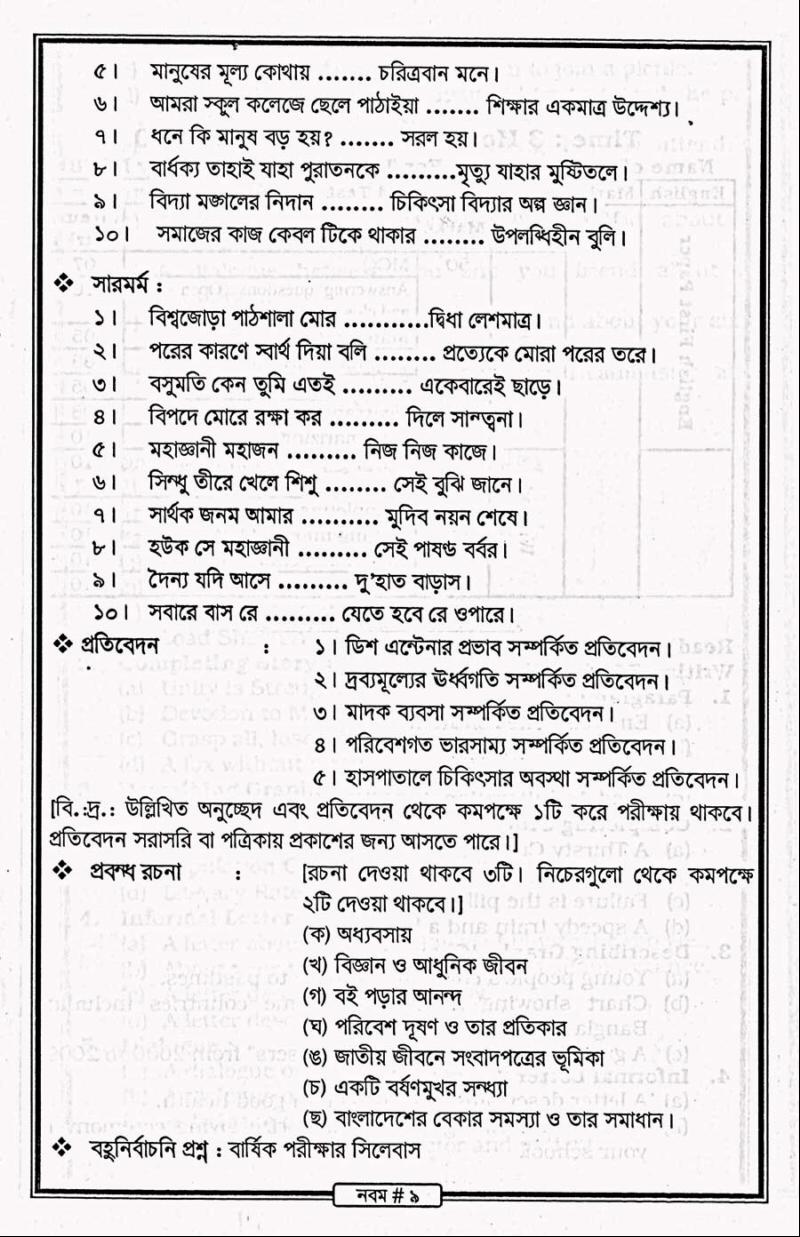 ৫। মানুষের মূল্য কোথায় ....... চরিত্রবান মনে।
৬। আমরা স্কুল কলেজে ছেলে পাঠাইয়া ....... শিক্ষার একমাত্র উদ্দেশ্য।
৭। ধনে কি মানুষ বড় হয়? ....... সরল হয়।
৮। বার্ধক্য তাহাই যাহা পুরাতনকে .........মৃত্যু যাহার মুষ্টিতলে।
৯। বিদ্যা মঙ্গলের নিদান ........ চিকিৎসা বিদ্যার অল্প জ্ঞান।
১০। সমাজের কাজ কেবল টিকে থাকার ........ উপলব্ধিহীন বুলি।
❖ সারমর্ম :
১। বিশ্বজোড়া পাঠশালা মোর ...........দ্বিধা লেশমাত্র।
২। পরের কারণে স্বার্থ দিয়া বলি ........ প্রত্যেকে মোরা পরের তরে।
৩। বসুমতি কেন তুমি এতই ......... একেবারেই ছাড়ে।
৪। বিপদে মোরে রক্ষা কর ......... দিলে সান্ত্বনা।
৫। মহাজ্ঞানী মহাজন ......... নিজ নিজ কাজে।
৬। সিন্ধু তীরে খেলে শিশু ........ সেই বুঝি জানে।
৭। সার্থক জনম আমার .......... মুদিব নয়ন শেষে।
৮। হউক সে মহাজ্ঞানী ......... সেই পাষণ্ড বর্বর।
৯। দৈন্য যদি আসে ......... দু'হাত বাড়াস।
১০। সবারে বাস রে ......... যেতে হবে রে ওপারে।
❖ প্রতিবেদন : ১। ডিশ এন্টেনার প্রভাব সম্পর্কিত প্রতিবেদন।
২। দ্রব্যমূল্যের ঊর্ধ্বগতি সম্পর্কিত প্রতিবেদন।
৩। মাদক ব্যবসা সম্পর্কিত প্রতিবেদন।
৪। পরিবেশগত ভারসাম্য সম্পর্কিত প্রতিবেদন।
৫। হাসপাতালে চিকিৎসার অবস্থা সম্পর্কিত প্রতিবেদন।
[বি.:দ্র.: উল্লিখিত অনুচ্ছেদ এবং প্রতিবেদন থেকে কমপক্ষে ১টি করে পরীক্ষায় থাকবে।
প্রতিবেদন সরাসরি বা পত্রিকায় প্রকাশের জন্য আসতে পারে।]
❖ প্রবন্ধ রচনা : [রচনা দেওয়া থাকবে ৩টি। নিচেরগুলো থেকে কমপক্ষে
২টি দেওয়া থাকবে।]
(ক) অধ্যবসায়
(খ) বিজ্ঞান ও আধুনিক জীবন
(গ) বই পড়ার আনন্দ
(ঘ) পরিবেশ দূষণ ও তার প্রতিকার
(ঙ) জাতীয় জীবনে সংবাদপত্রের ভূমিকা
(চ) একটি বর্ষণমুখর সন্ধ্যা
(ছ) বাংলাদেশের বেকার সমস্যা ও তার সমাধান।
❖ বহুনির্বাচনি প্রশ্ন : বার্ষিক পরীক্ষার সিলেবাস
নবম # ৯